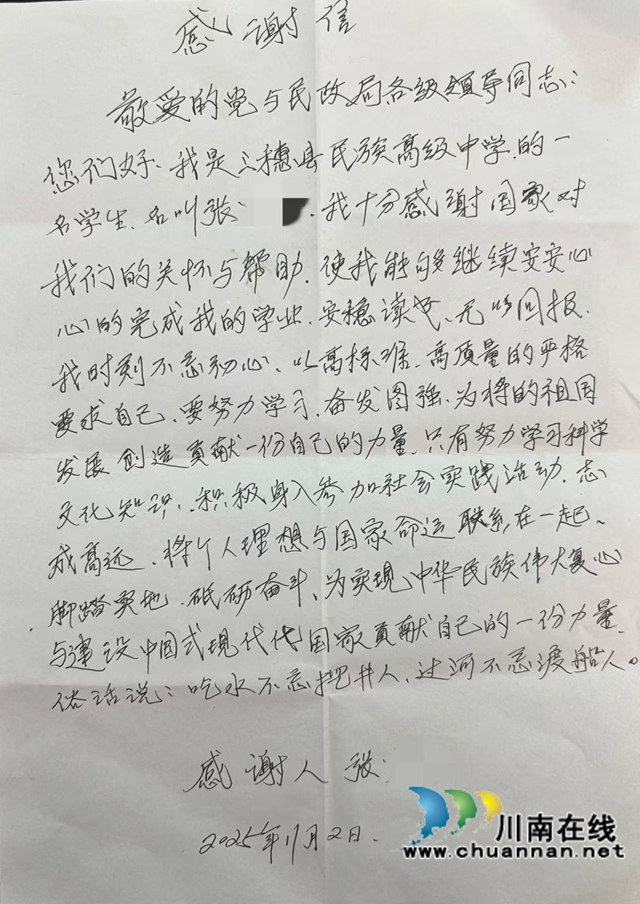 感谢信
敬爱的党与民政局各级领导同志:
您们好、我是三穗县民族高级中学的一
名学生、名叫张 、我十分感谢国家对
我们的关怀与帮助、使我能够继续安安心
心的完成我的学业、安稳读书、无以回报、
我时刻不忘初心、以高标准、高质量的严格
要求自己、要努力学习、奋发图强、为将的祖国
发展创造贡献一份自己的力量、只有努力学习科学
文化知识、积极身入参加社会实践活动、志
成高远、将个人理想与国家命运联系在一起、
脚踏实地、砥砺奋斗、为实现中华民族伟大复心
与建设中国式现代代国家贡献自己的一份力量、
俗话说:吃水不忘把井人、过河不忘渡船人。
感谢人 张
2025年11月2日.
川南在线
www.chuannan.net